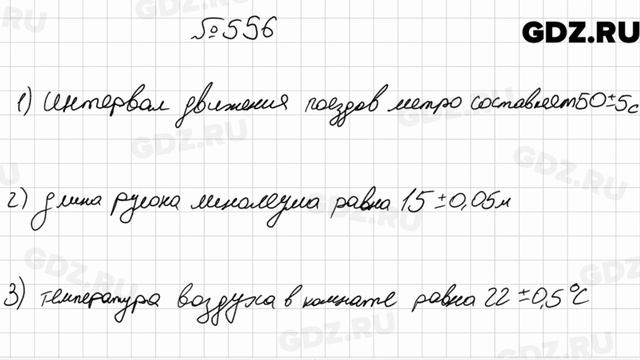 №556
GDZ.RU
1) Интервал движения поездов метро составляет 50±5с
GDZ.RU
GDZ.RU
GDZ.RU
2) длина рулона линолеума равна 15±0,05м
GDZ.RU
GDZ.RU
3) температура воздуха в комнате равна 22±0,5°С
GDZ.RU